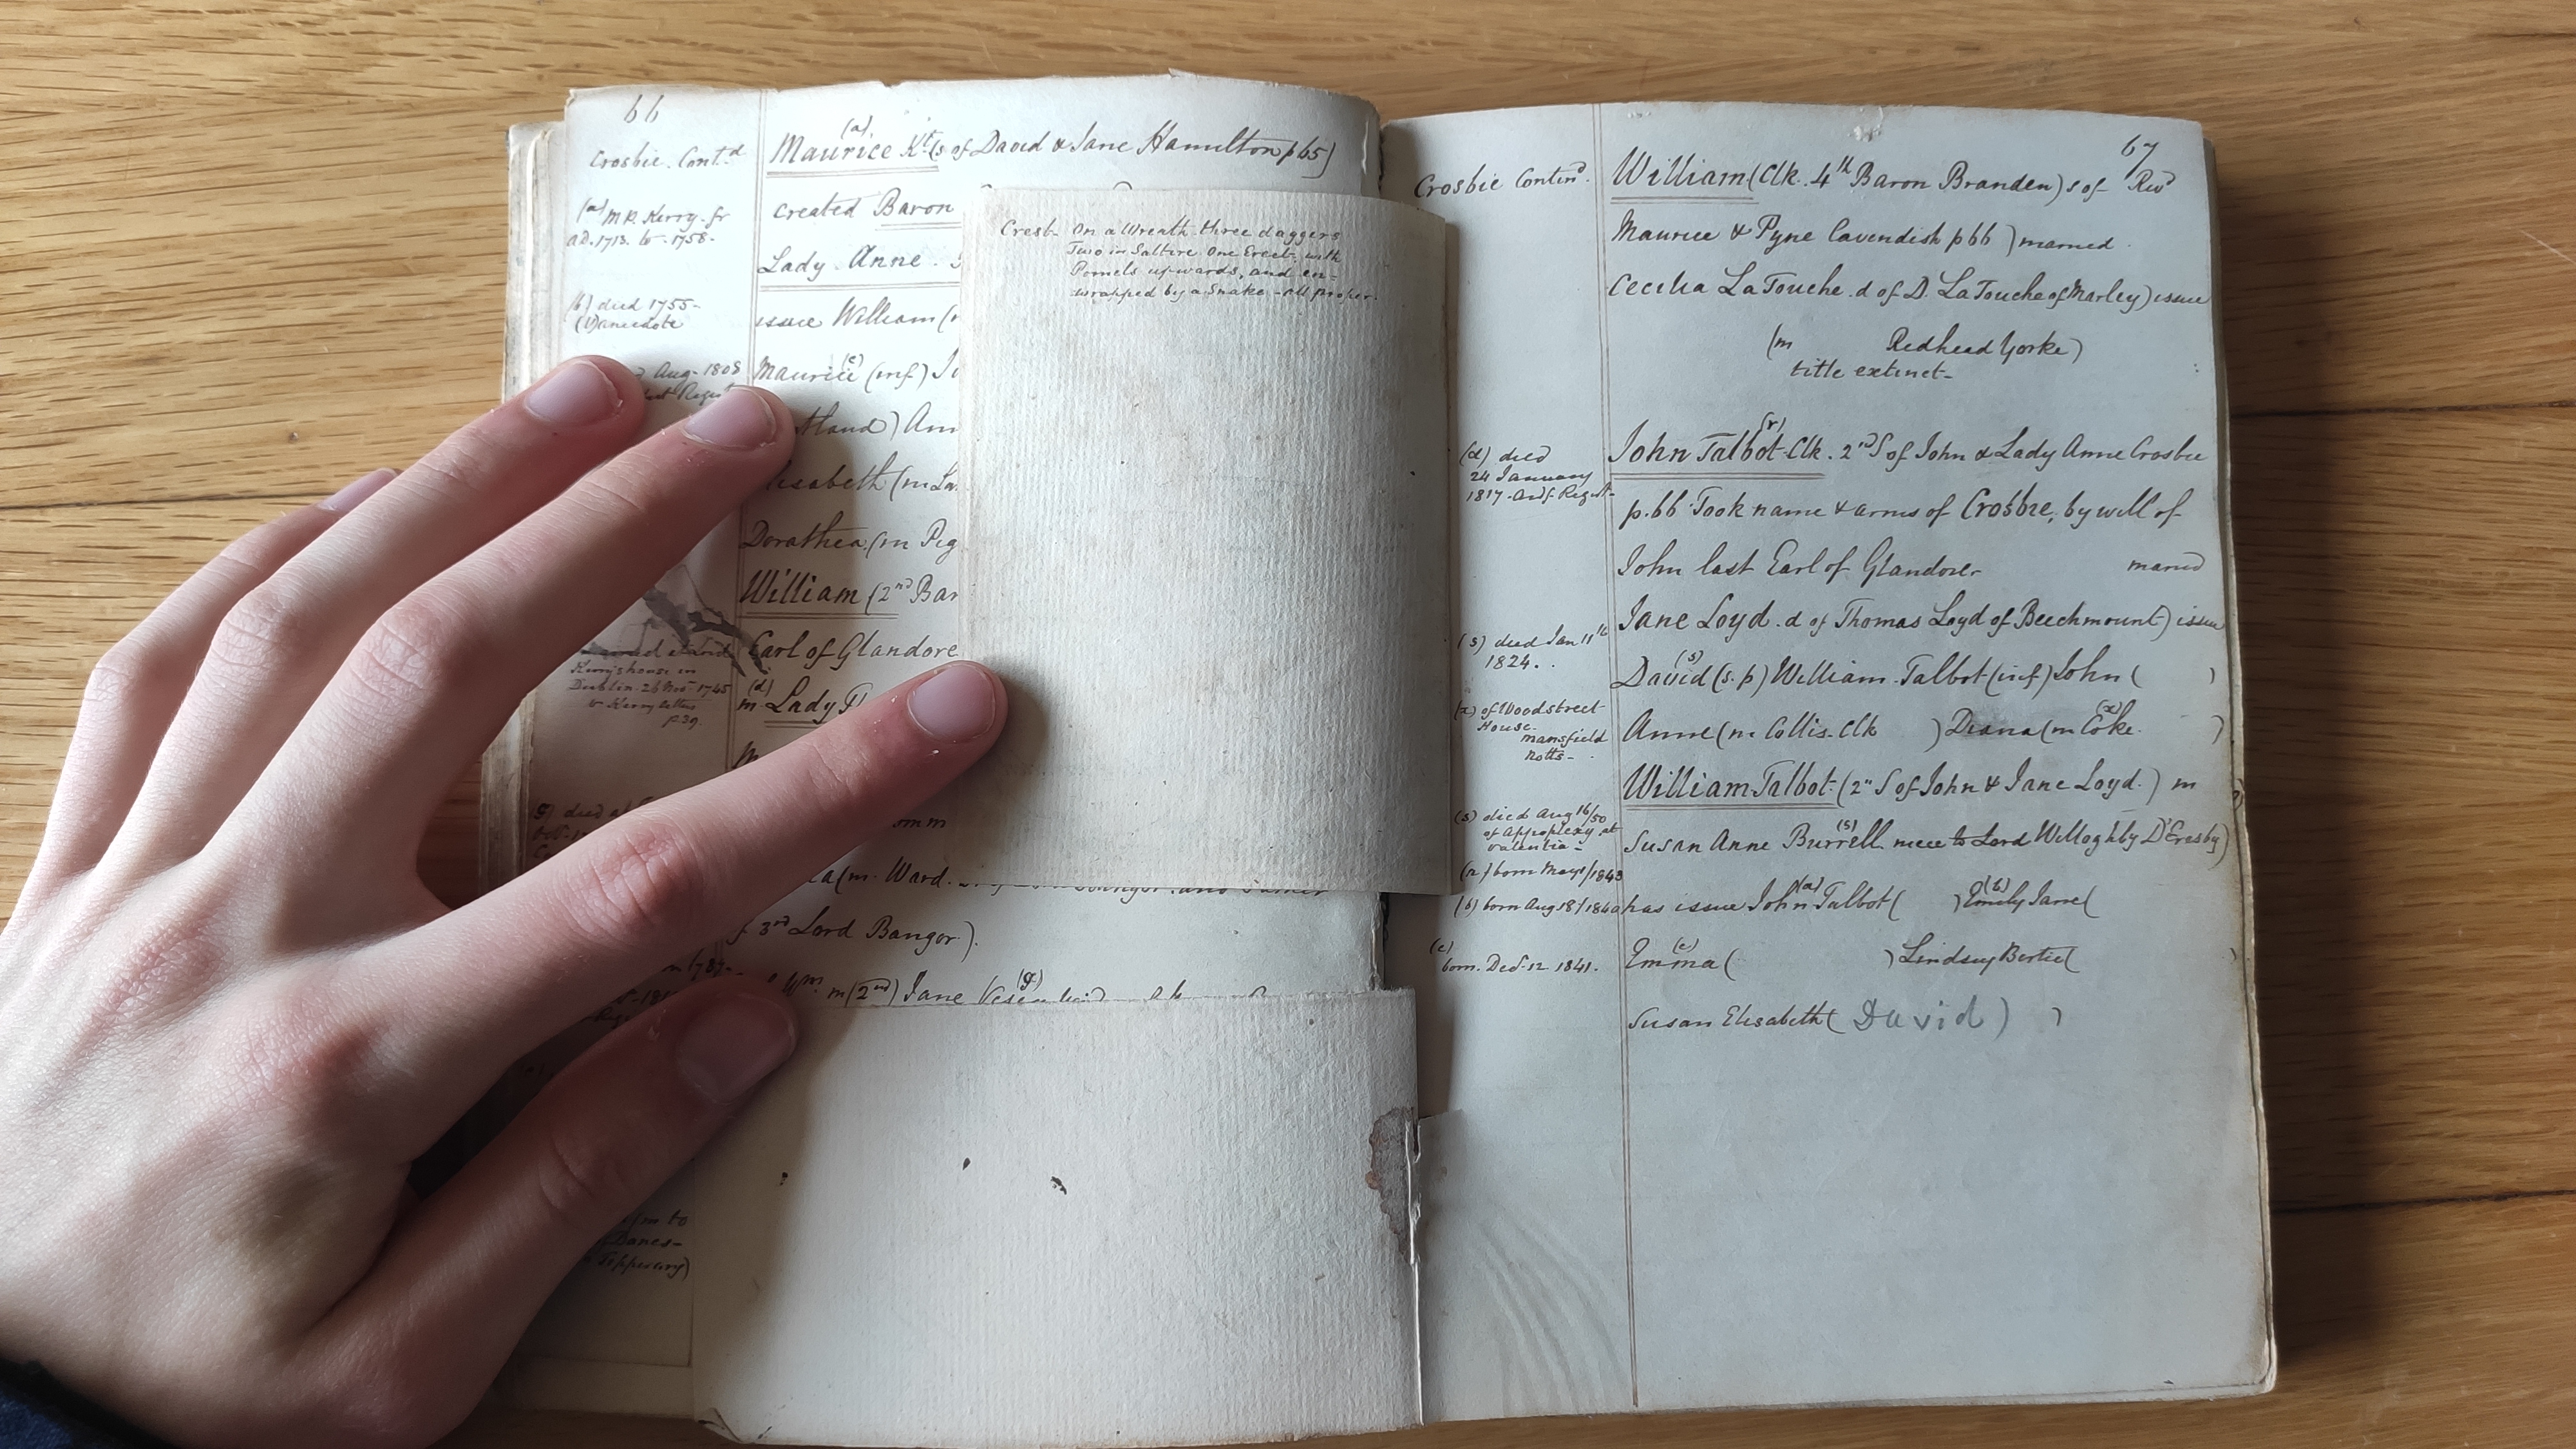 66
Crosbie. Cont.d
(a)
Maurice Kt (s of David & Jane Hamilton p 65)
(a) M.P. Kerry fr
ad. 1713. to 1758-
created Baron
Lady Anne.
(b) died 1755-
(1) anecdote
issue William (
Aug- 1808
(c)
Maurice (inf)
land) Ann
Elisabeth (m La
Dorathea (m Pig
William (2nd Bar
Earl of Glandore
Kingshouse in
Dublin. 26 Nov 1745
v Kerry letters
p 39.
(d)
m. Lady
g) died at
a (m. Ward.
3rd Lord Bangor).
Wm m (2nd) Jane
(g)
(m to
Danes-
Tipperary)
Crest- On a Wreath three daggers
Two in Saltire One Erect, with
Pomels upwards, and en-
wrapped by a Snake - all proper.
67
Crosbie Contind.
William (Clk. 4th Baron Branden) s of Revd
Maurice & Pyne Cavendish p 66) married
Cecilia LaTouche. d of D. LaTouche of Marley) issue
(m Redhead Yorke)
title extinct-
(r)
John Talbot Clk. 2nd S of John & Lady Anne Crosbie
(d) died
24 January
1817. Ardf. Regist-
p. 66 Took name & arms of Crosbie, by will of
John last Earl of Glandore married
Jane Loyd. d of Thomas Loyd of Beechmount) issue
(s) died Jan 11th
1824.
(s)
David (s.p) William Talbot (inf) John ( )
(x) of Woodstreet
House.
mansfield
Notts-
(x)
Anne (m Collis. Clk ) Diana (m Coke. )
William Talbot (2" S of John & Jane Loyd.) m
(s) died Aug 16/50
of Appoplexy at
Valentia-
(s)
Susan Anne Burrell. niece to Lord Willoghby D'Eresby)
(a) born May 1/1843
(b) born Aug 18/1840
(a) (b)
has issue John Talbot ( ) Emily Jane (
(c)
born. Decr 12 1841.
(c)
Emma ( ) Lindsey Bertie ( )
Susan Elisabeth ( David ) )